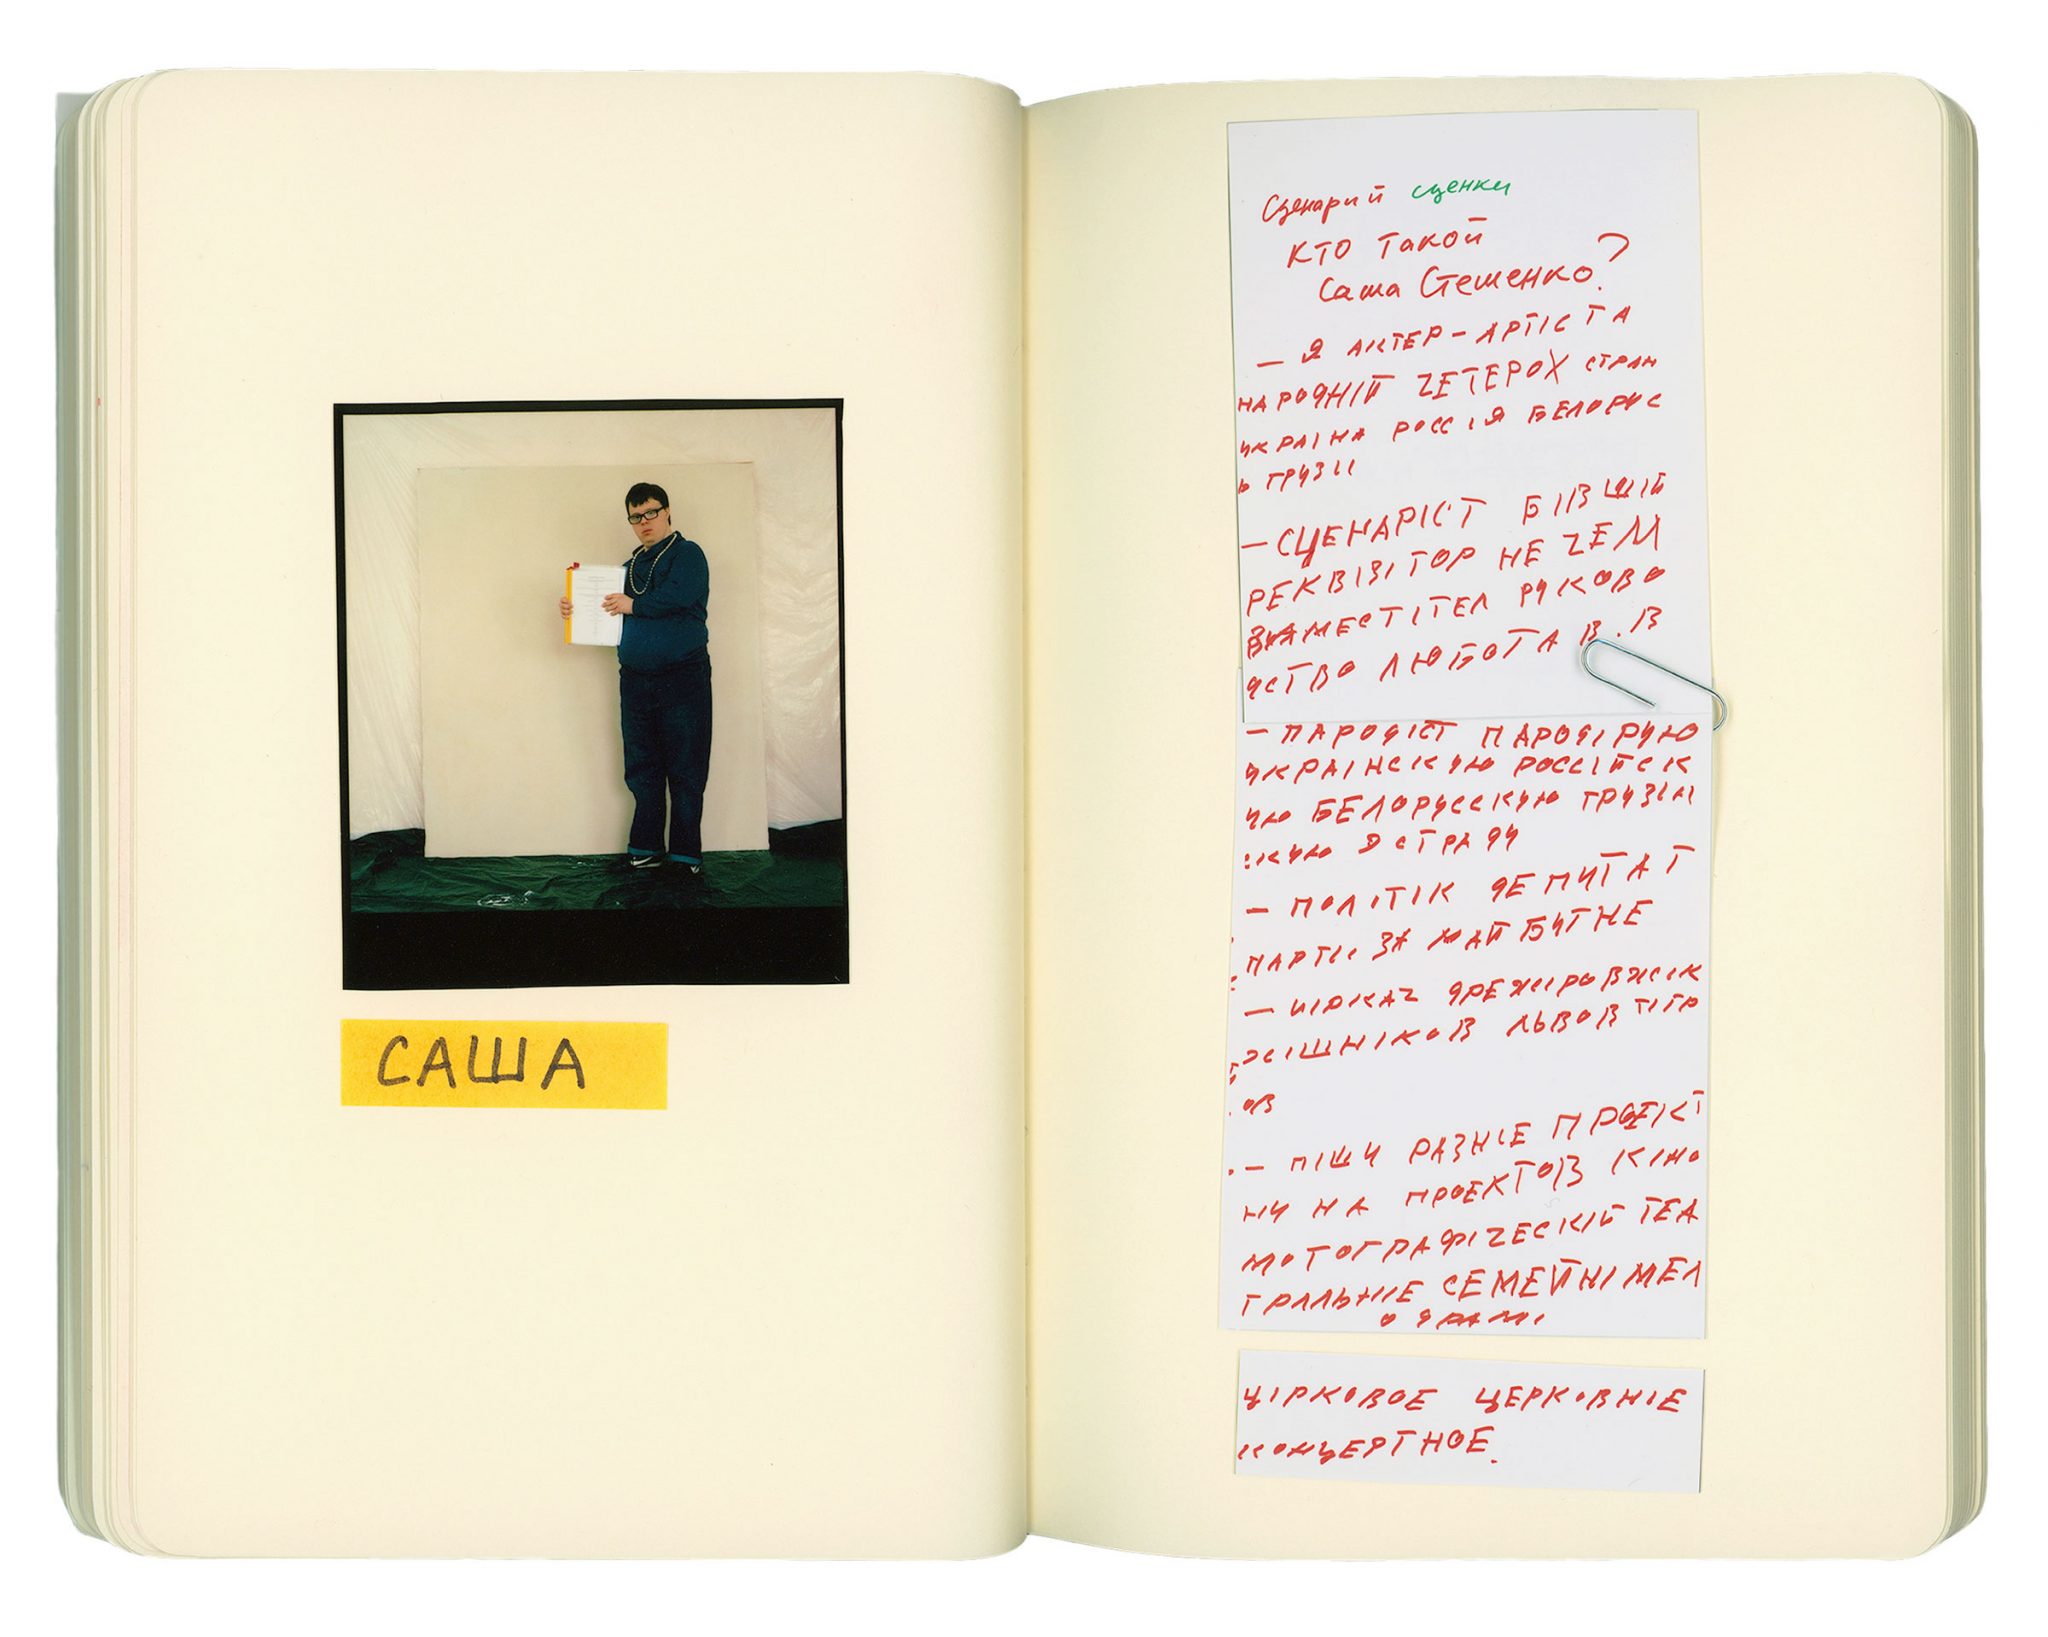 САША
Сценарий сценки
КТО ТАКОЙ
Саша Стешенко?
– Я АКТЕР – АРТІСТ А
НАРОДНІЙ ЧЕТЕРОХ СТРАН
УКРАІНА РОССІЯ БЕЛОРУС
Ь ГРУЗІІ
– СЦЕНАРІСТ БІВШІЙ
РЕКВІЗІТОР НЕ ЧЕМ
ЗАМЕСТІТЕЛ РУКОВО
ДСТВО ЛЮБОТА В.В
– ПАРОДІСТ ПАРОДІРУЮ
УКРАІНСКУЮ РОССІЙСК
УЮ БЕЛОРУССКУЮ ГРУЗІН
СКУЮ ЭСТРАДУ
– ПОЛІТІК ДЕПУТАТ
ПАРТІІ ЗА МАЙБУТНЕ
– ЦІРКАЧ ДРЕЖІРОВЖІК
ХІШНІКОВ ЛЬВОВ ТІГР
ОВ
– ПІШУ РАЗНІЕ ПРОЕКТ
НУ НА ПРОЕКТОВ КІНО
МОТОГРАФІЧЕСКІЙ ТЕА
ТРАЛЬНІЕ СЕМЕЙНІ МЕЛ
О ДРАМІ
ЦІРКОВОЕ ЦЕРКОВНІЕ
КОНЦЕРТНОЕ.